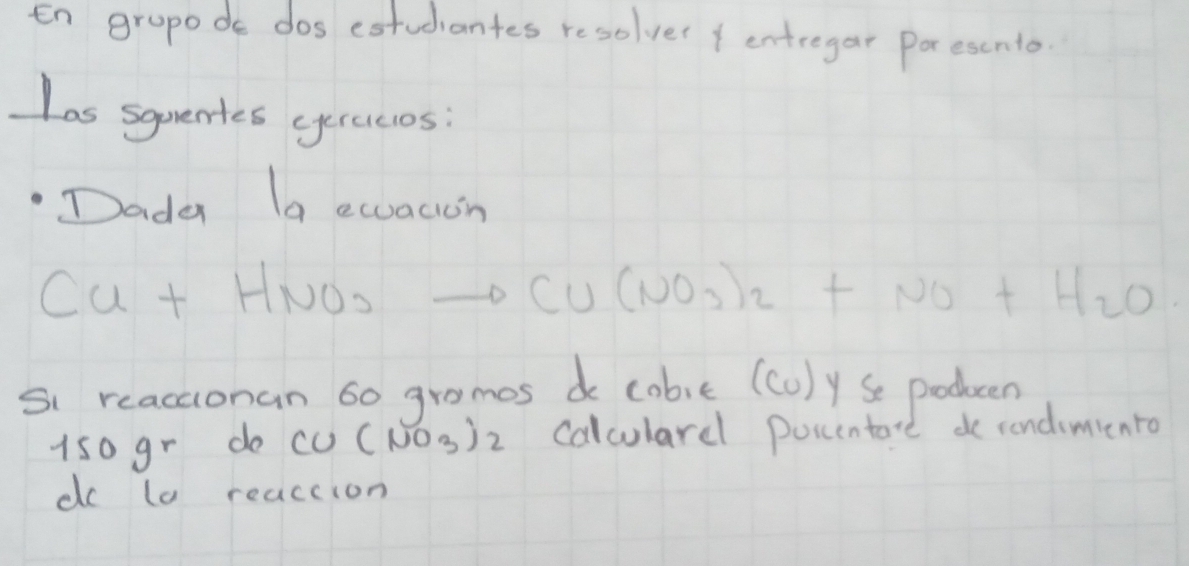 En grupo de dos estudiantes resolver y entregar por escrito.
Las sguientes ejercicios:
• Dada la ecuación
Cu + HNO3 → CU (NO3)2 + NO + H2O.
Si reaccionan 60 gramos de cobre (Cu) y se producen
150 gr de CU (NO3)2 calcular el porcentaje de rendimiento
de la reaccion